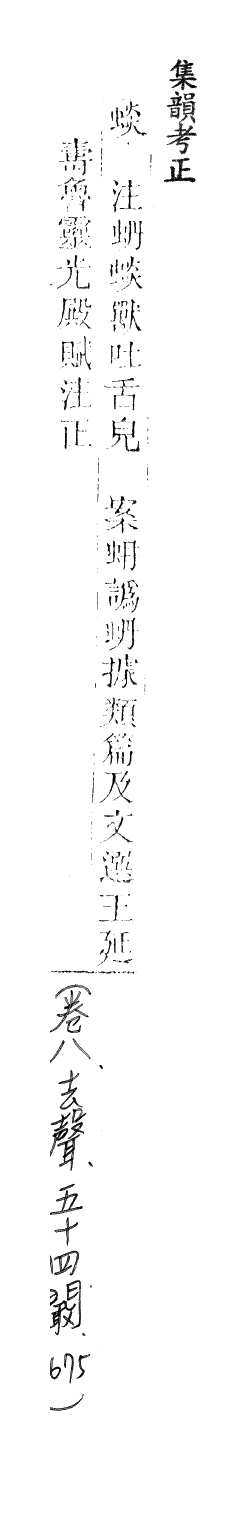 集韻考正
舕 注舑舕獸吐舌皃 案舑譌據類篇及文選王延
壽魯靈光殿賦注正
(卷八、去聲、五十四闞、675)